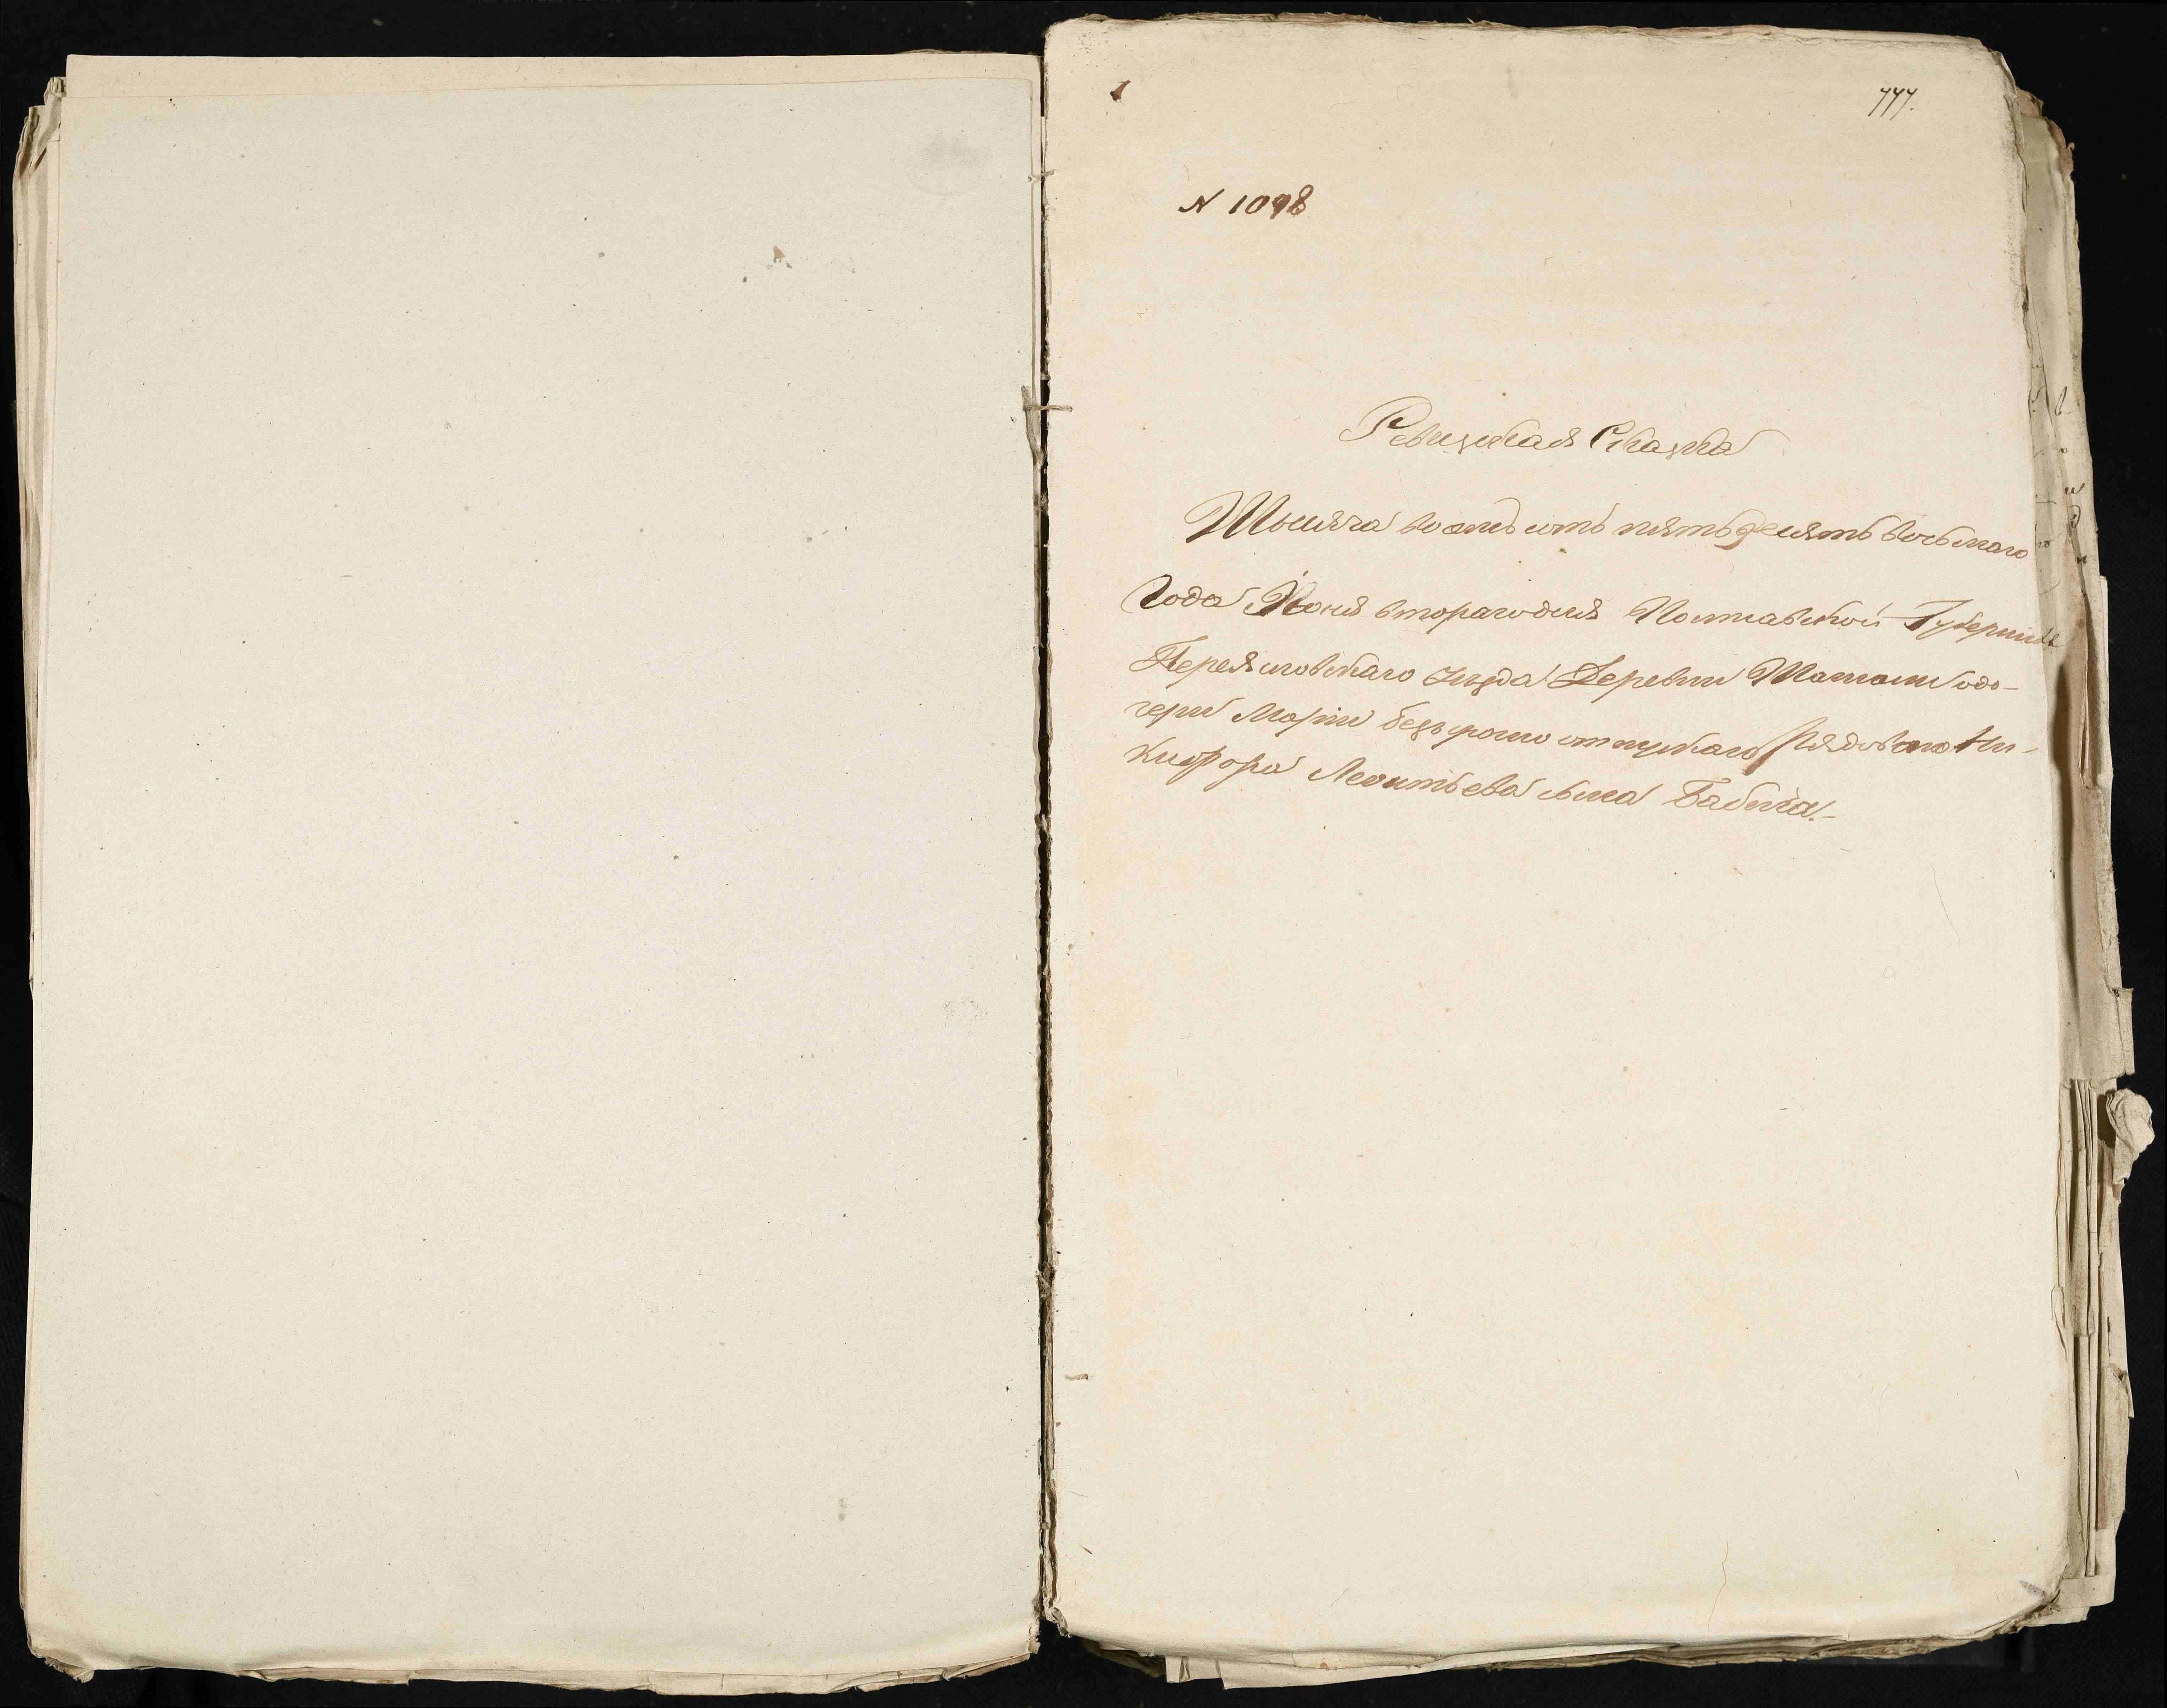 777.
N 1098
Ревизская Сказка
Тысяча восемь сотъ пятьдесятъ восьмаго
Года Июня втораго дня Полтавской Губерніи
Переясловскаго уезда Деревни
чери Маріи безсрочно отпускнаго Рядоваго Ни-
кифора Леонтьева сына Бабича.-